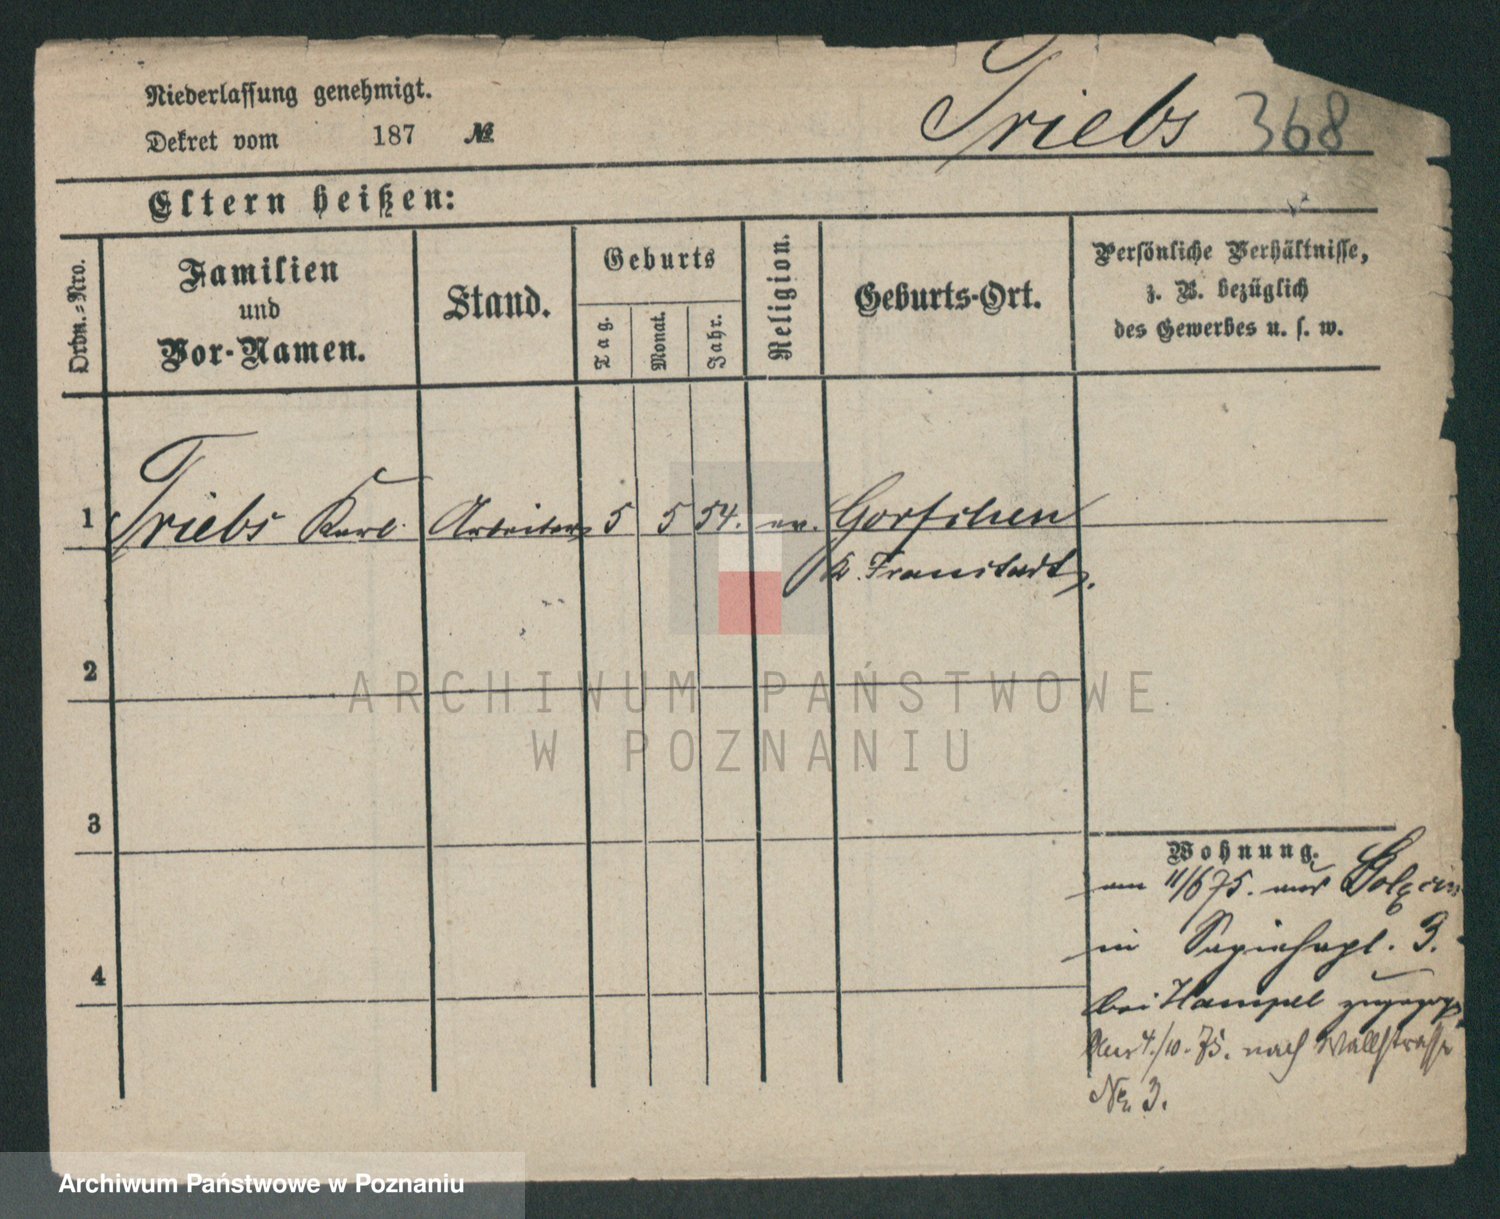 Niederlassung genehmigt.
Dekret vom 187 №
Triebs 368
Eltern heißen:
Ordn.-Nro.
Familien
und
Vor-Namen.
Stand.
Geburts
Tag.
Monat.
Jahr.
Religion.
Geburts-Ort.
Persönliche Verhältnisse,
z. B. bezüglich
des Gewerbes u. s. w.
1 Triebs Karl Arbeiter 5 5 54. ev. Gorschen
K. Fraustadt.
2
3
4
Wohnung.
am 11/6 75. aus
in Sapiehapl. 3.
bei Hampel
4./10. 75. nach Wallstrasse
No. 3.
ARCHIWUM PAŃSTWOWE
W POZNANIU
Archiwum Państwowe w Poznaniu